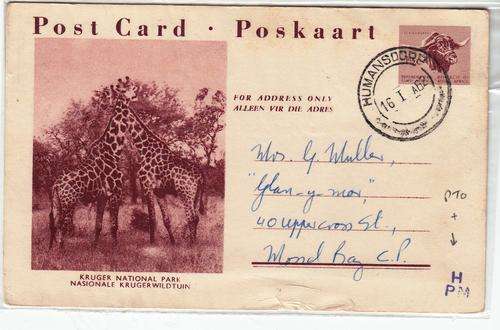 Post Card · Poskaart
HUMANSDORP
16 I 60
FOR ADDRESS ONLY
ALLEEN VIR DIE ADRES
Mrs. G. Muller,
"Glan-y-mor,"
40 Uppercross St.,
Mossel Bay C.P.
PTO
+
↓
H
PM
KRUGER NATIONAL PARK
NASIONALE KRUGERWILDTUIN